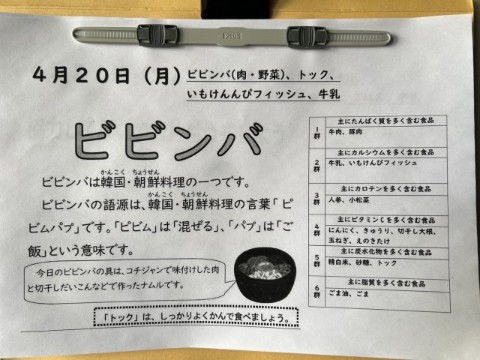 ４月２０日（月）
ビビンバ（肉・野菜）、トック、
いもけんぴフィッシュ、牛乳
ビビンバ
ビビンバは韓国・朝鮮料理の一つです。
かんこく ちょうせん
ビビンバの語源は、韓国・朝鮮料理の言葉「ビ
かんこく ちょうせん
ビムパプ」です。「ビビム」は「混ぜる」、「パプ」は「ご
飯」という意味です。
今日のビビンバの具は、コチジャンで味付けした肉
と切干しだいこんなどで作ったナムルです。
「トック」は、しっかりよくかんで食べましょう。
主にたんぱく質を多く含む食品
1群
牛肉、豚肉
主にカルシウムを多く含む食品
2群
牛乳、いもけんぴフィッシュ
主にカロテンを多く含む食品
3群
人参、小松菜
主にビタミンCを多く含む食品
4群
にんにく、きゅうり、切干し大根、
玉ねぎ、えのきたけ
主に炭水化物を多く含む食品
5群
精白米、砂糖、トック
主に脂質を多く含む食品
6群
ごま油、ごま